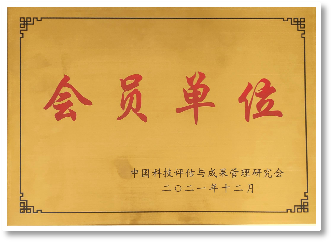 会员单位
中国科技评估与成果管理研究会
二〇二一年十二月